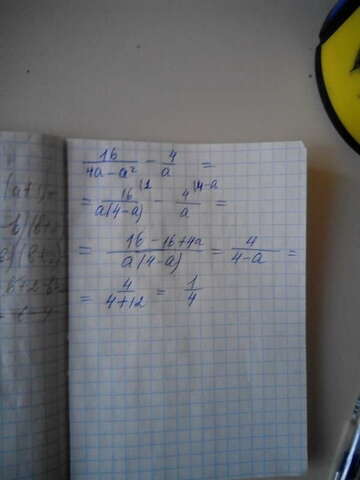 16/(4a-a²) - 4/a =
= 16/(a(4-a)) |1 - 4/a |4-a =
= (16-16+4a)/(a(4-a)) = 4/(4-a) =
= 4/(4+12) = 1/4